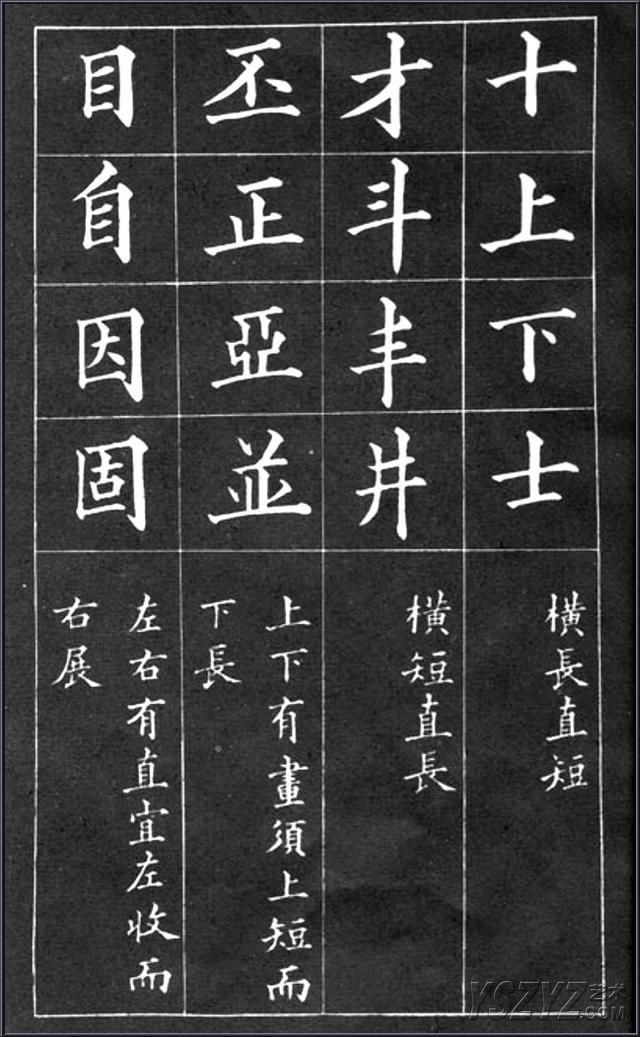 十上下士
橫長直短
才斗丰井
橫短直長
丕正亞並
上下有畫須上短而
下長
目自因固
左右有直宜左收而
右展
YSZYZ艺术
.COM